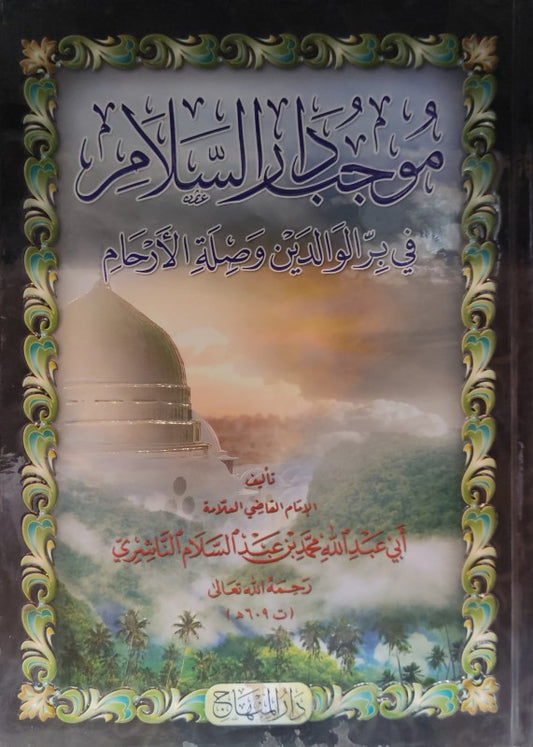 مُوجِبُ دَارِ السَّلَامِ
في بِرِّ الوَالِدَيْنِ وَصِلَةِ الأَرْحَامِ
تأليف
الإمام القاضي العلّامة
أبي عبد الله محمّد بن عبد السلام الناشري
رحمه الله تعالى
(ت ٦٠٩ هـ)
دار المنهاج